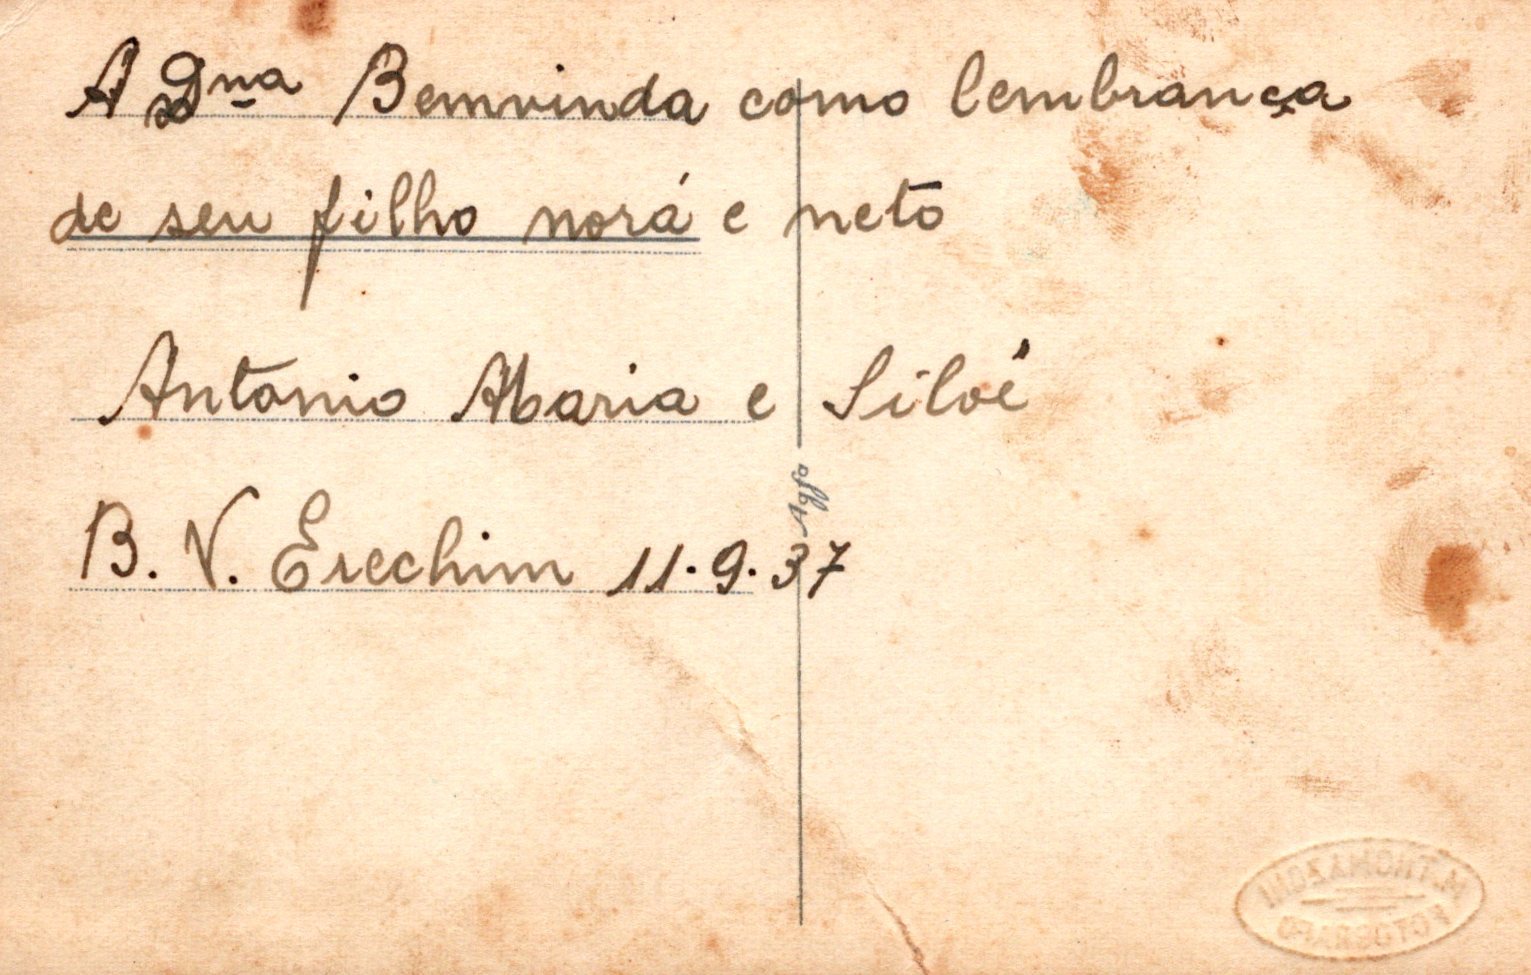 A Dna Bemvinda como lembrança
de seu filho norá e neto
Antonio Maria e Siloé
B. V. Erechim 11.9.37
Agfa
FOTOGRAFO